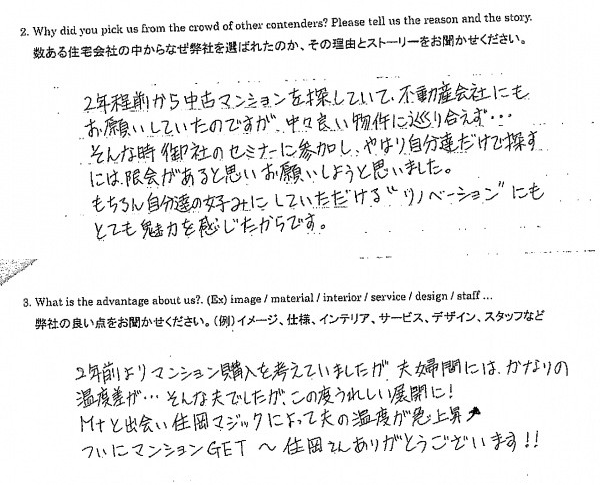 2. Why did you pick us from the crowd of other contenders? Please tell us the reason and the story.
数ある住宅会社の中からなぜ弊社を選ばれたのか、その理由とストーリーをお聞かせください。
2年程前から中古マンションを探していて、不動産会社にも
お願いしていたのですが、中々良い物件に巡り合えず・・・
そんな時御社のセミナーに参加し、やはり自分達だけで探す
には、限会があると思いお願いしようと思いました。
もちろん自分達の好みにしていただける"リノベーション"にも
とても魅力を感じたからです。
3. What is the advantage about us?. (Ex) image / material / interior / service / design / staff ...
弊社の良い点をお聞かせください。(例)イメージ、仕様、インテリア、サービス、デザイン、スタッフなど
2年前よりマンション購入を考えていましたが、夫婦間には、かなりの
温度差が・・・そんな夫でしたが、この度うれしい展開に!
M+と出会い住岡マジックによって夫の温度が急上昇↗
ついにマンションGET 〜 住岡さんありがとうございます!!